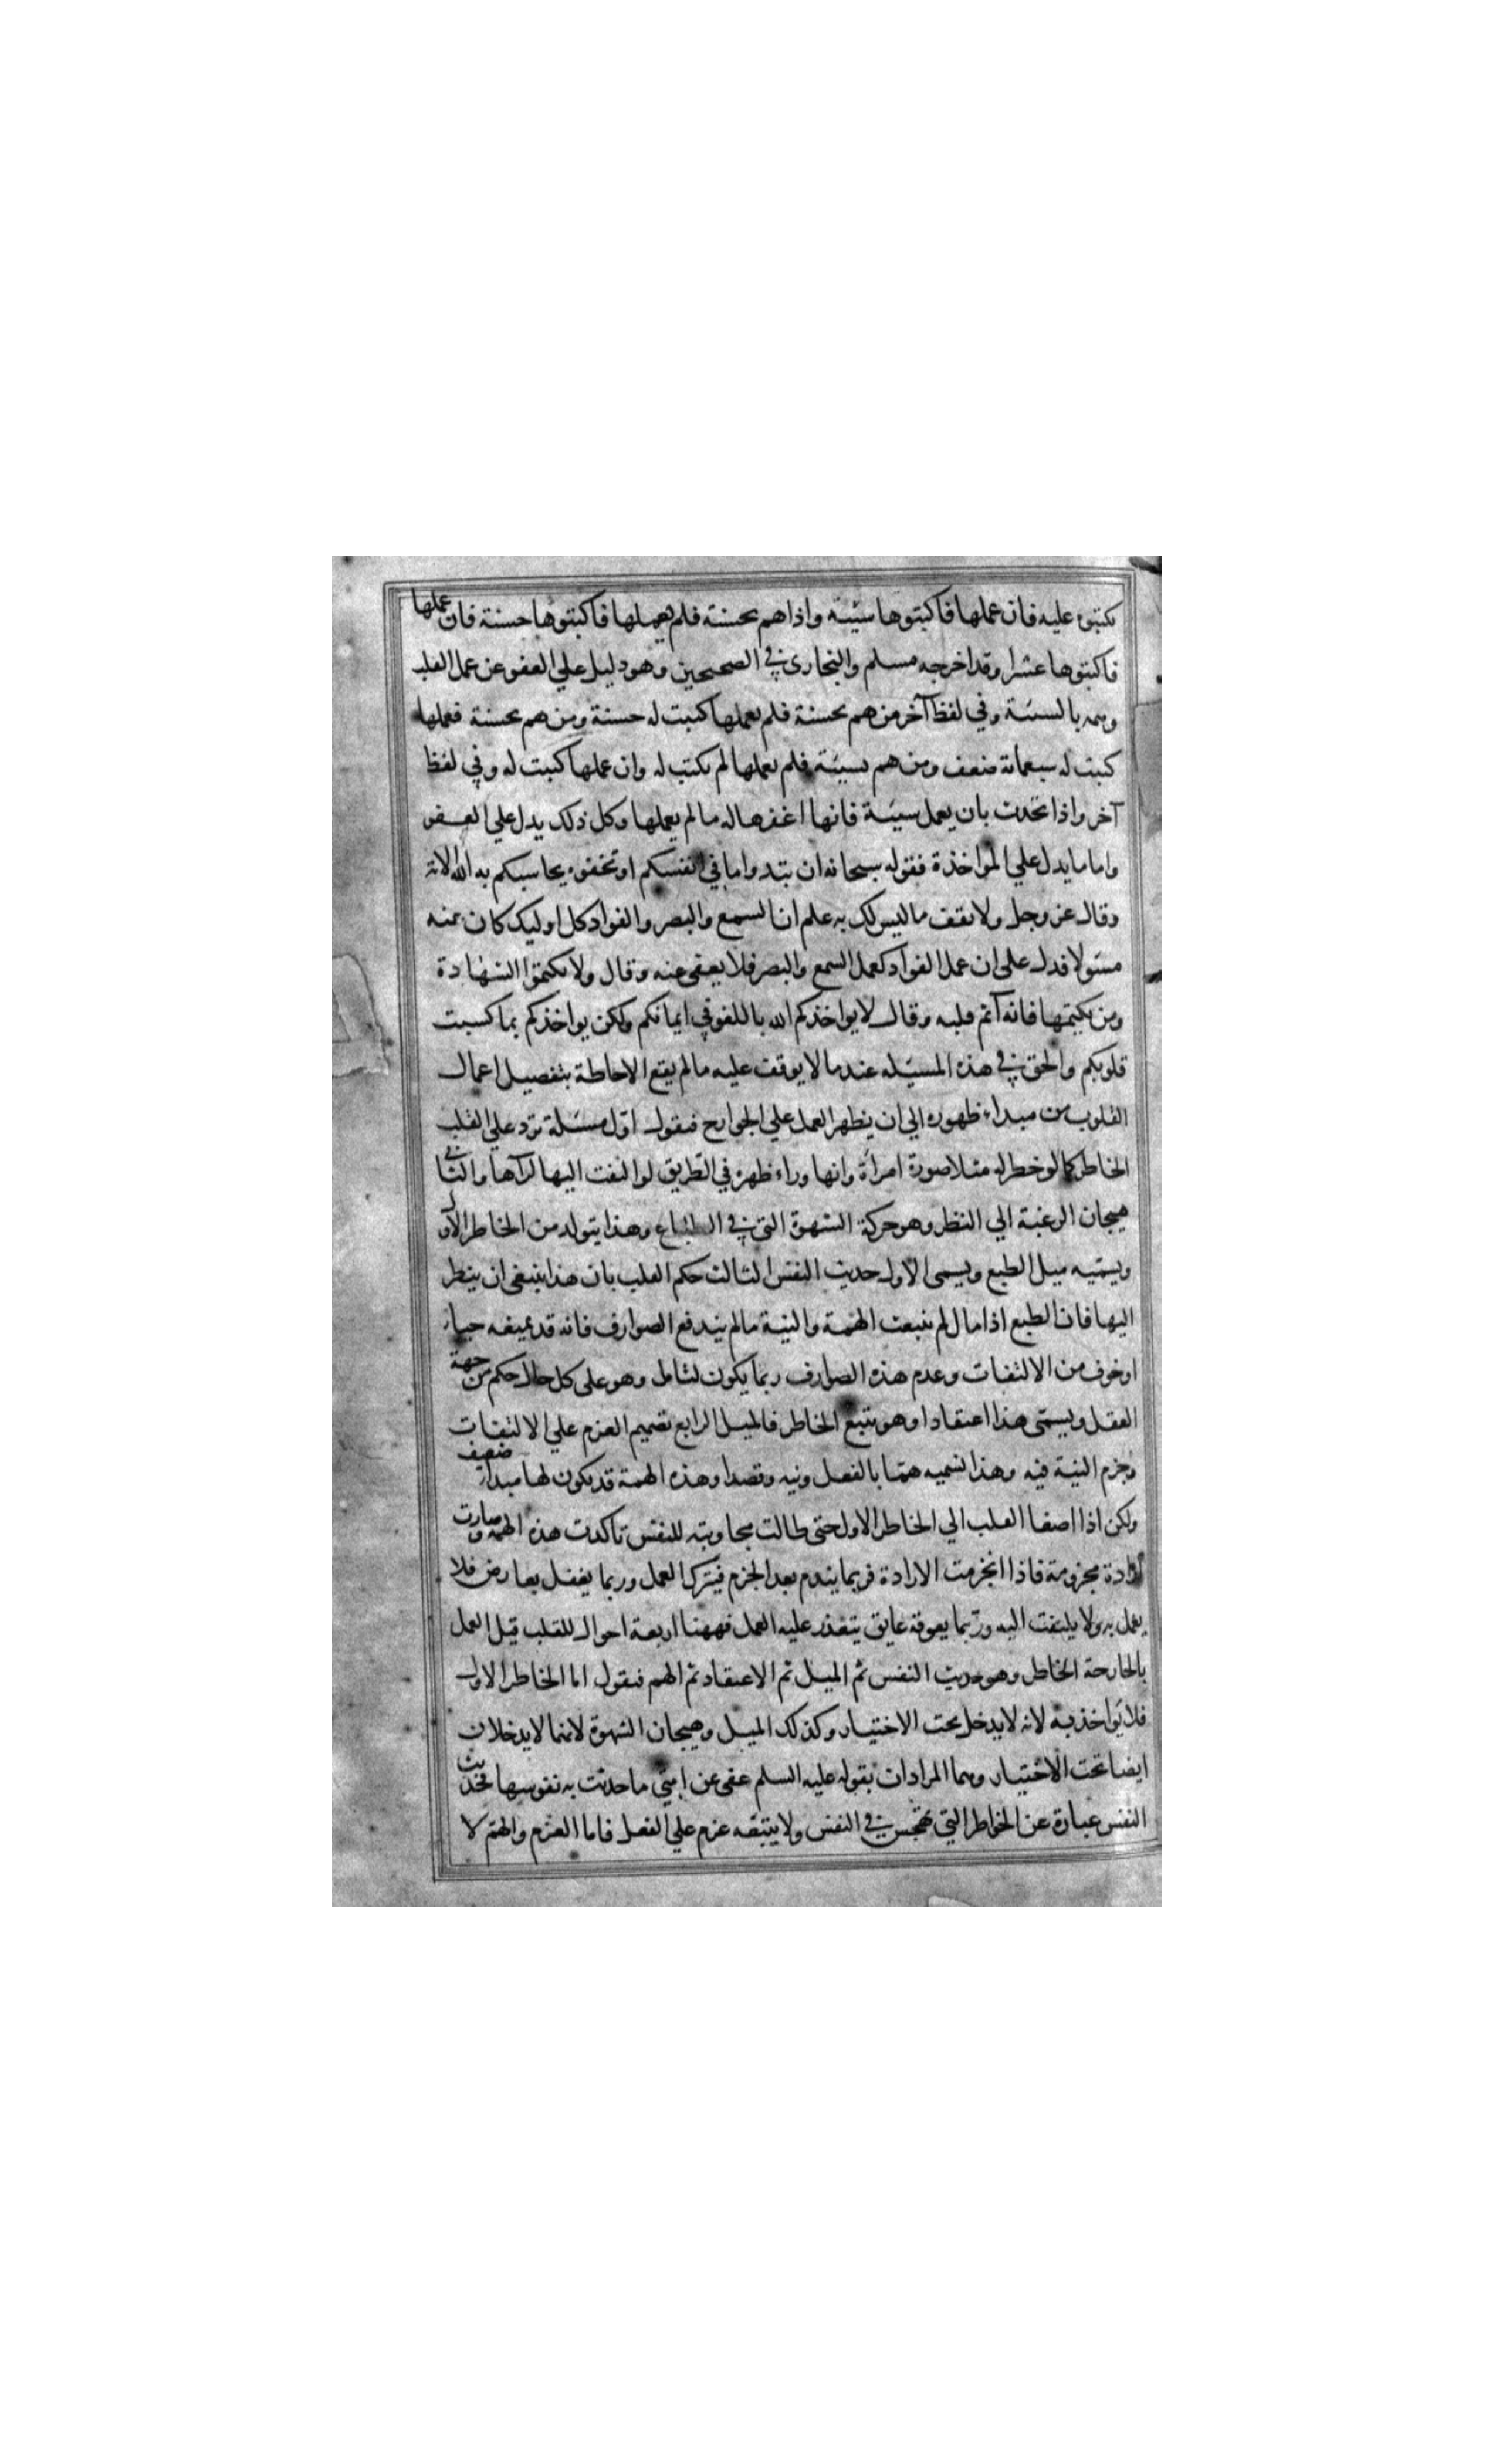 تكتبوه عليه فان عملها فاكتبوها سيئة واذا هم بحسنة فلم يعملها فاكتبوها حسنة فان عملها
فاكتبوها عشرا وقد اخرجه مسلم والبخاري في الصحيحين وهو دليل علي العفو عن عمل القلب
وهمه بالسيئة وفي لفظ آخر من هم بحسنة فلم يعملها كتبت له حسنة ومن هم بحسنة فعملها
كتبت له سبعمائة ضعف ومن هم بسيئة فلم يعملها لم تكتب له وان عملها كتبت له وفي لفظ
آخر واذا تحدث بان يعمل سيئة فانها اغفرها له ما لم يعملها وكل ذلك يدل علي العفو
واما ما يدل علي المواخذة فقوله سبحانه ان تبدوا ما في انفسكم او تخفوه يحاسبكم به الله الاية
وقال عز وجل ولا تقف ما ليس لك به علم ان السمع والبصر والفواد كل اوليك كان عنه
مسئولا فدل على ان عمل الفواد كعمل السمع والبصر فلا يعفى عنه وقال ولا تكتموا الشهادة
ومن يكتمها فانه آثم قلبه وقال لا يواخذكم الله باللغو في ايمانكم ولكن يواخذكم بما كسبت
قلوبكم والحق في هذه المسئله عندما لا يوقف عليه ما لم يقع الاحاطة بتفصيل اعمال
القلوب من مبداء ظهوره الي ان يظهر العمل علي الجوارح فنقول اول مسئلة ترد علي القلب
الخاطر كما لو خطر له مثلا صورة امرأة وانها وراء ظهره في الطريق لو التفت اليها لرآها والثاني
هيجان الرغبة الي النظر وهو حركة الشهوة التي في الطباع وهذا يتولد من الخاطر الاول
ويسميه ميل الطبع ويسمى الاول حديث النفس الثالث حكم القلب بان هذا ينبغي ان ينظر
اليها فان الطبع اذا مال لم تنبعث الهمة والنية ما لم يندفع الصوارف فانه قد يمنعه حياء
او خوف من الالتفات وعدم هذه الصوارف ربما يكون لتامل وهو على كل حال حكم من جهة
العقل ويسمى هذا اعتقادا وهو يتبع الخاطر فالميل الرابع تصميم العزم علي الالتفات
وجزم النية فيه وهذا نسميه همّا بالفعل ونيه وقصدا وهذه الهمة قد يكون لها مبداء ضعيف
ولكن اذا اصغا القلب الي الخاطر الاول حتى طالت مجاوبته للنفس تاكدت هذه الهمه وصارت
ارادة مجزومة فاذا انجزمت الارادة فربما يندم بعد الجزم فيترك العمل وربما يغفل بعارض فلا
يعمل به ولا يلتفت اليه وربّما يعوقه عايق يتعذر عليه العمل فههنا اربعة احوال للقلب قبل العمل
بالجارحة الخاطر وهو حديث النفس ثم الميل ثم الاعتقاد ثم الهم فنقول اما الخاطر الاول
فلا يواخذ به لانه لا يدخل تحت الاختيار وكذلك الميل وهيجان الشهوة لانهما لا يدخلان
ايضا تحت الاختيار وهما المرادان بقوله عليه السلم عفى عن امتي ما حدثت به نفوسها فحديث
النفس عبارة عن الخواطر التي تهجس في النفس ولا يتبعه عزم علي الفعل فاما العزم والهم لا